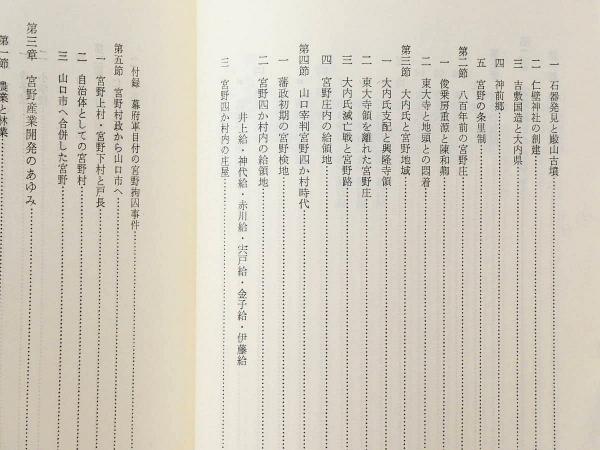 一 石器発見と殿山古墳
二 仁壁神社の創建
三 吉敷国造と大内県
四 神前郷
五 宮野の条里制
第二節 八百年前の宮野庄
一 俊乗房重源と陳和卿
二 東大寺と地頭との悶着
第三節 大内氏と宮野地域
一 大内氏支配と興隆寺領
二 東大寺領を離れた宮野庄
三 大内氏滅亡戦と宮野路
四 宮野庄内の給領地
第四節 山口宰判宮野四か村時代
一 藩政初期の宮野検地
二 宮野四か村内の給領地
井上給・神代給・赤川給・宍戸給・金子給・伊藤給
三 宮野四か村内の庄屋
付録 幕府軍目付の宮野拘囚事件
第五節 宮野村政から山口市へ
一 宮野上村・宮野下村と戸長
二 自治体としての宮野村
三 山口市へ合併した宮野
第三章 宮野産業開発のあゆみ
第一節 農業と林業